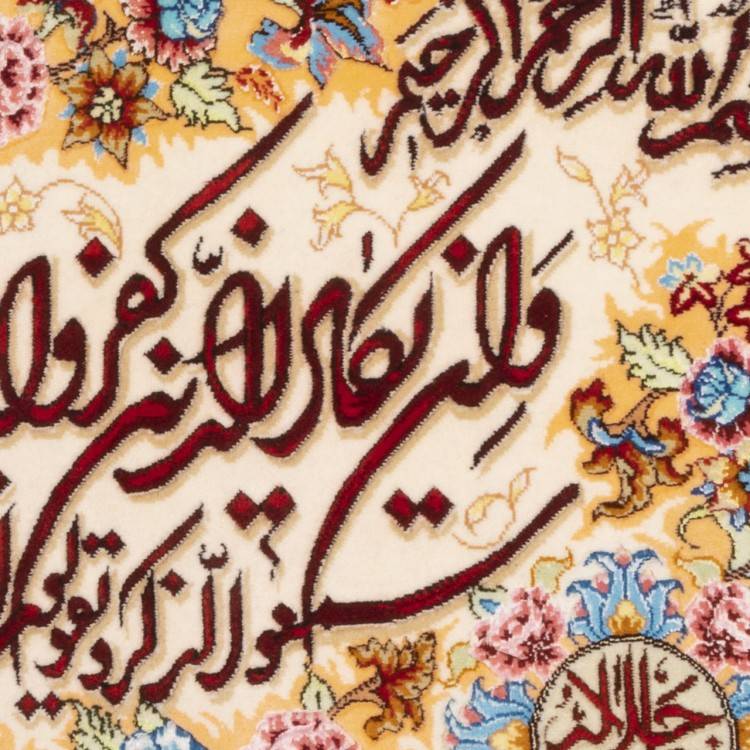 بسم الله الرحمن الرحیم
وَإِن یَکَادُ الَّذِینَ کَفَرُوا
سمعوا الذّکر و یقولون
جل جلاله